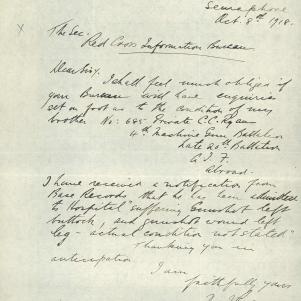 Semaphore
Oct. 8th 1918.
X
The Sec.
Red Cross Information Bureau
Dear Sir,
I shall feel much obliged if
your Bureau will have enquiries
set on foot as to the condition of my
brother No: 685 Private C.C. Ryan
4th Machine Gun Battalion
late 20th Battalion
A.I.F.
Abroad.
I have received a notification from
Base Records that he has been admitted
to Hospital "suffering Gunshot left
buttock, and gunshot wound left
leg - actual condition not stated"
Thanking you in
anticipation
I am
faithfully yours